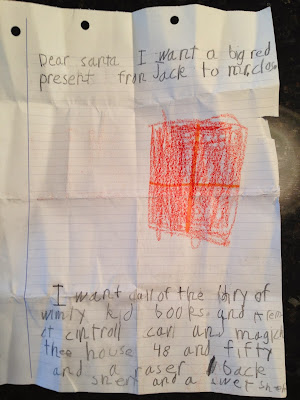 Dear santa I want a big red
present from Jack to mr.clos
I want all of the diry of
wimly kid books. and
controll car and magic
thee house 48 and fifty
and a raser back
snert and a